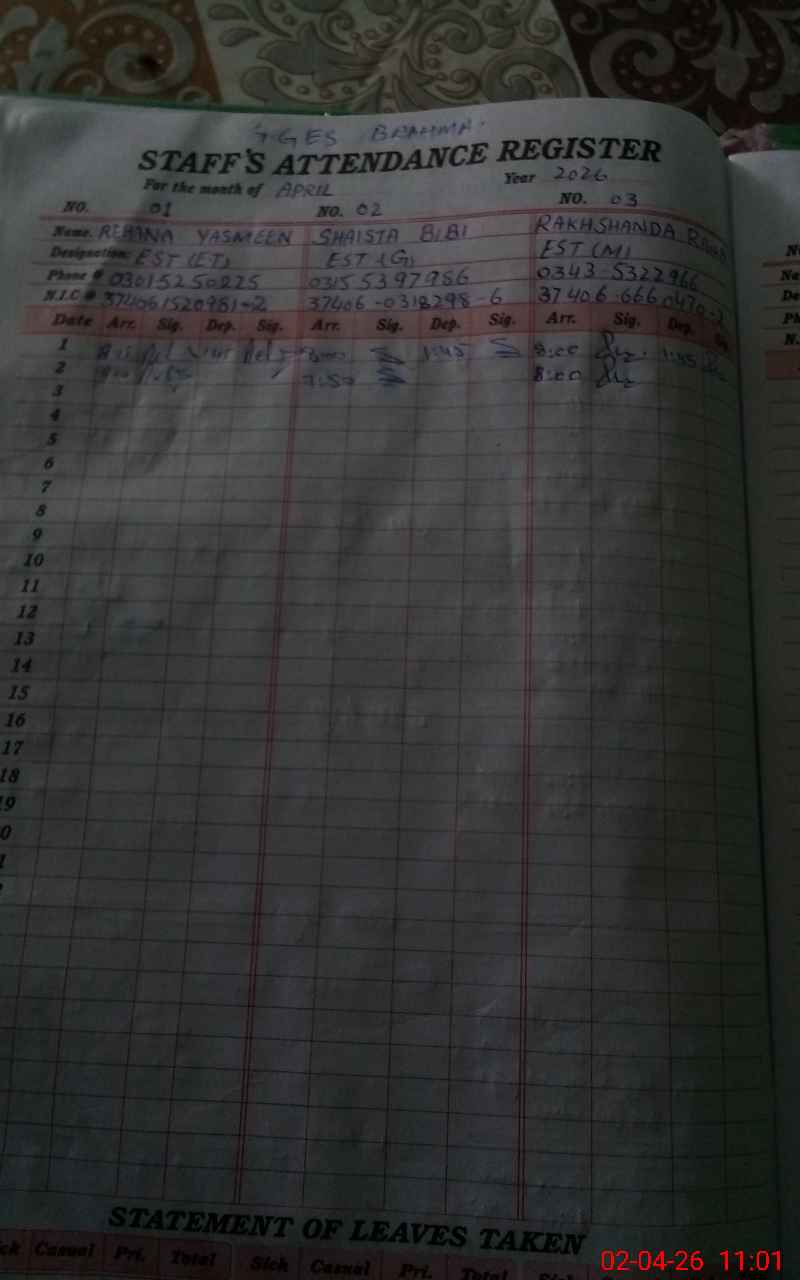 GGES BRAHMA
STAFF'S ATTENDANCE REGISTER
For the month of APRIL Year 2026
NO. 01 NO. 02 NO. 03
Name. REHANA YASMEEN SHAISTA BIBI RAKHSHANDA
Designation: EST (ET) EST (G) EST (M)
Phone # 03015250225 0315 5397986 0343-5322966
N.I.C # 374061520981-2 37406-0318298-6 37406-6660470-2
Date Arr. Sig. Dep. Sig. Arr. Sig. Dep. Sig. Arr. Sig. Dep. Sig.
1 8:00 1:45 8:00 1:45
2 7:50 8:00
3
4
5
6
7
8
9
10
11
12
13
14
15
16
17
18
19
0
STATEMENT OF LEAVES TAKEN
ick Casual Pri. Total Sick Casual Pri. Total Sick Casual
02-04-26 11:01